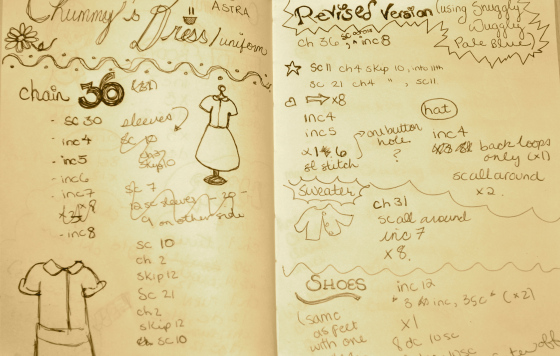 Chummy's
ASTRA
Dress/uniform
chain 36 (31)
- sc 30
- inc 4
- inc 5
- inc 6
- inc 7
x 8
- inc 8
sleeves
sc 10
skip 10
sc 7
9 on other side
sc 10
ch 2
skip 12
sc 21
ch 2
skip 12
sc 10
Revised Version (using Snuggly
Wuggly
Pale Blue)
ch 36, inc 8
sc 11 ch 4 skip 10, into 11th
sc 21 ch 4 " , sc 11
x8
inc 4
inc 5
x 6
sl stitch
on button
hole
?
hat
inc 4
back loops
only (x1)
sc all around
x 2
Sweater
ch 31
sc all around
inc 7
x 8
SHOES
(same
as feet
with one
inc 12
inc, 3sc* (x2)
x1
8 dc 10sc